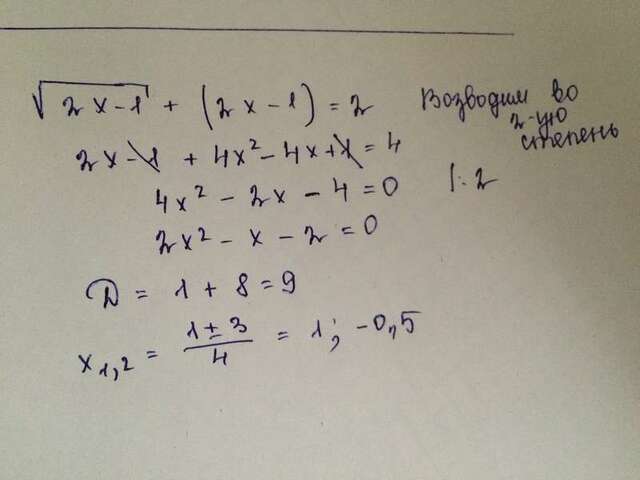 √2x-1 + (2x-1) = 2 Возводим во 2-ую степень
2x-1 + 4x²-4x+1 = 4
4x² - 2x - 4 = 0 |:2
2x² - x - 2 = 0
D = 1 + 8 = 9
x1,2 = 1±3/4 = 1; -0,5